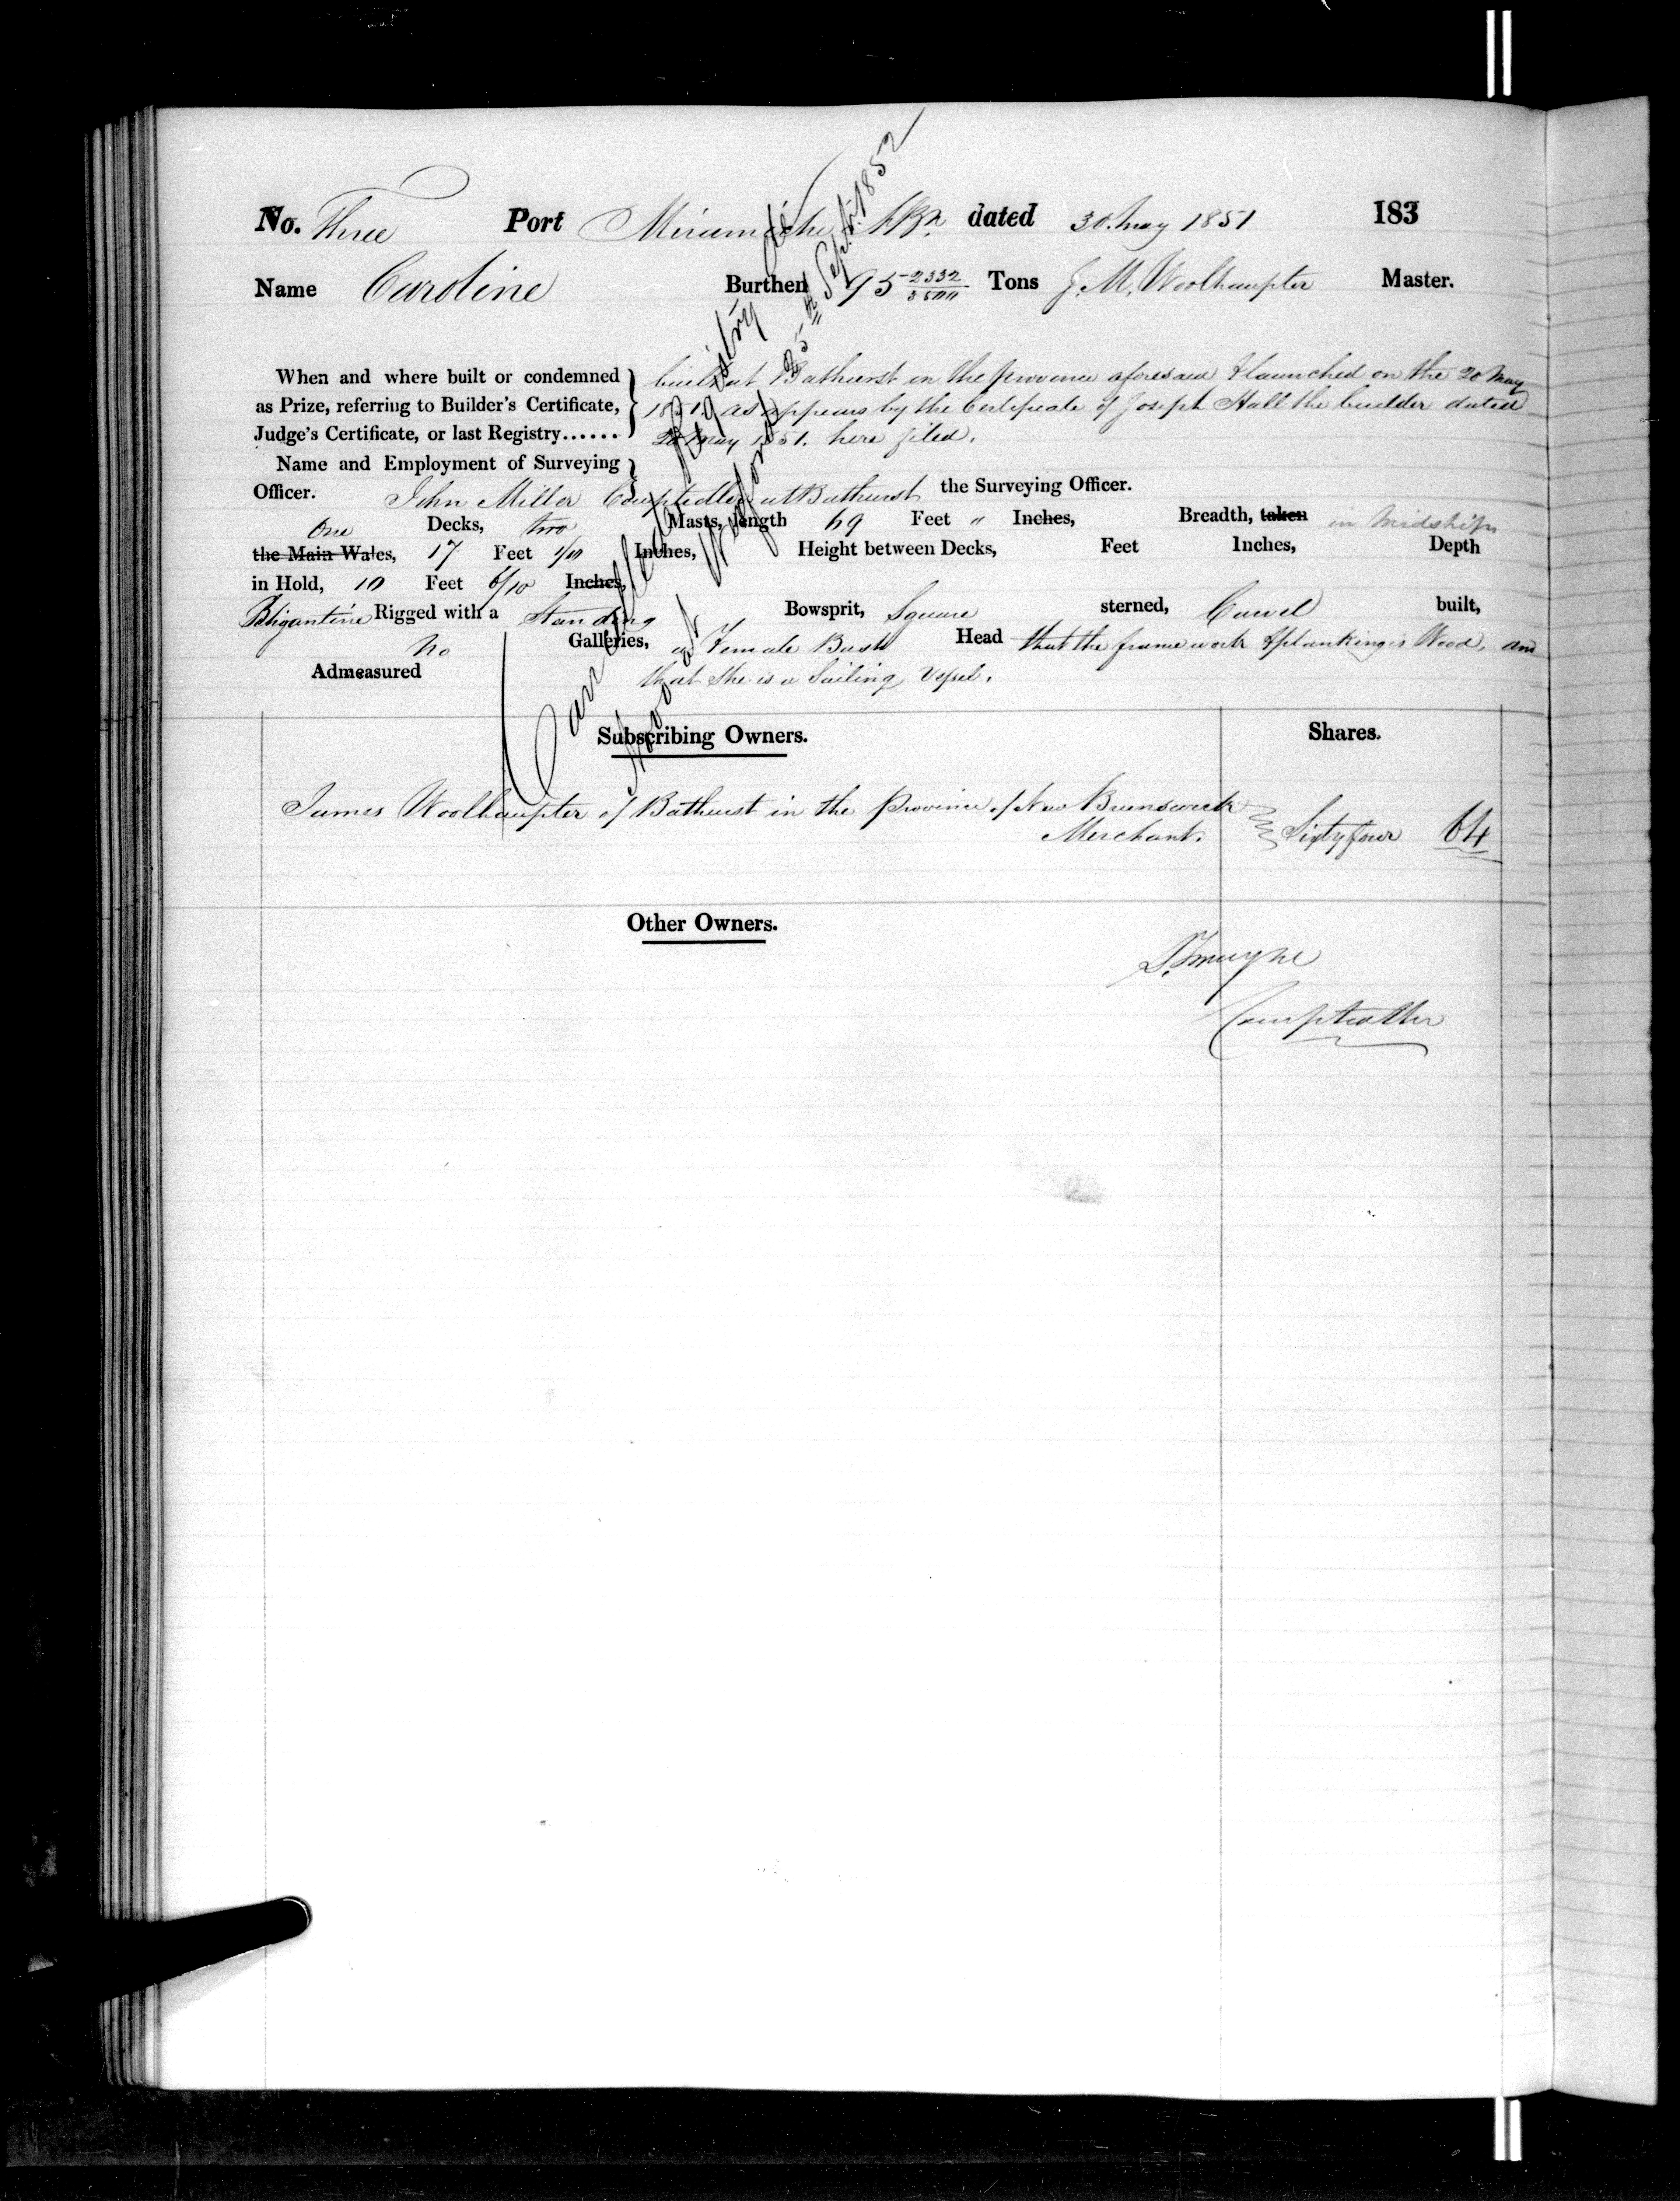 No. Three Port Miramichi N.B. dated 30. May 1851 183
Name Caroline Burthen 95 2332/3500 Tons J. M. Woolhaupter Master.
When and where built or condemned as Prize, referring to Builder's Certificate, Judge's Certificate, or last Registry......
built at Bathurst in the province aforesaid & launched on the 20 May
1851. as appears by the Certificate of Joseph Hall the builder dated
20 May 1851. here filed.
Name and Employment of Surveying
Officer. John Miller Comptroller at Bathurst the Surveying Officer.
One Decks, two Masts, length 69 Feet " Inches, Breadth, taken in Midships
the Main Wales, 17 Feet 1/10 Inches, Height between Decks, Feet Inches, Depth
in Hold, 10 Feet 6/10 Inches,
Brigantine Rigged with a Standing Bowsprit, Square sterned, Carvel built,
No Galleries, a Female Bust Head that the frame work & planking is Wood, and
Admeasured that She is a Sailing Vessel.
Cancelled and Registry de novo
at 25th Sept. 1852
Subscribing Owners. Shares.
James Woolhaupter of Bathurst in the Province of New Brunswick
Merchant. Sixty four 64
Other Owners.
Comptroller